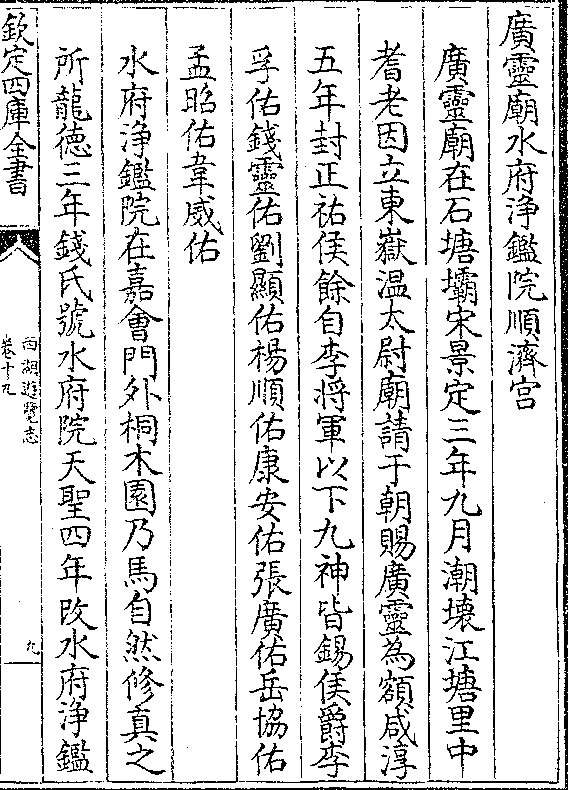 廣靈廟水府浄鑑院順濟宫
廣靈廟在石塘壩宋景定三年九月潮壊江塘里中
耆老因立東嶽温太尉廟請于朝賜廣靈為額咸淳
五年封正祐侯餘自李將軍以下九神皆錫侯爵李
孚佑錢靈佑劉顯佑楊順佑康安佑張廣佑岳協佑
孟昭佑韋威佑
水府浄鑑院在嘉會門外桐木園乃馬自然修真之
所龍德三年錢氏號水府院天聖四年改水府浄鑑
欽定四庫全書
西湖遊覽志
卷十九
九